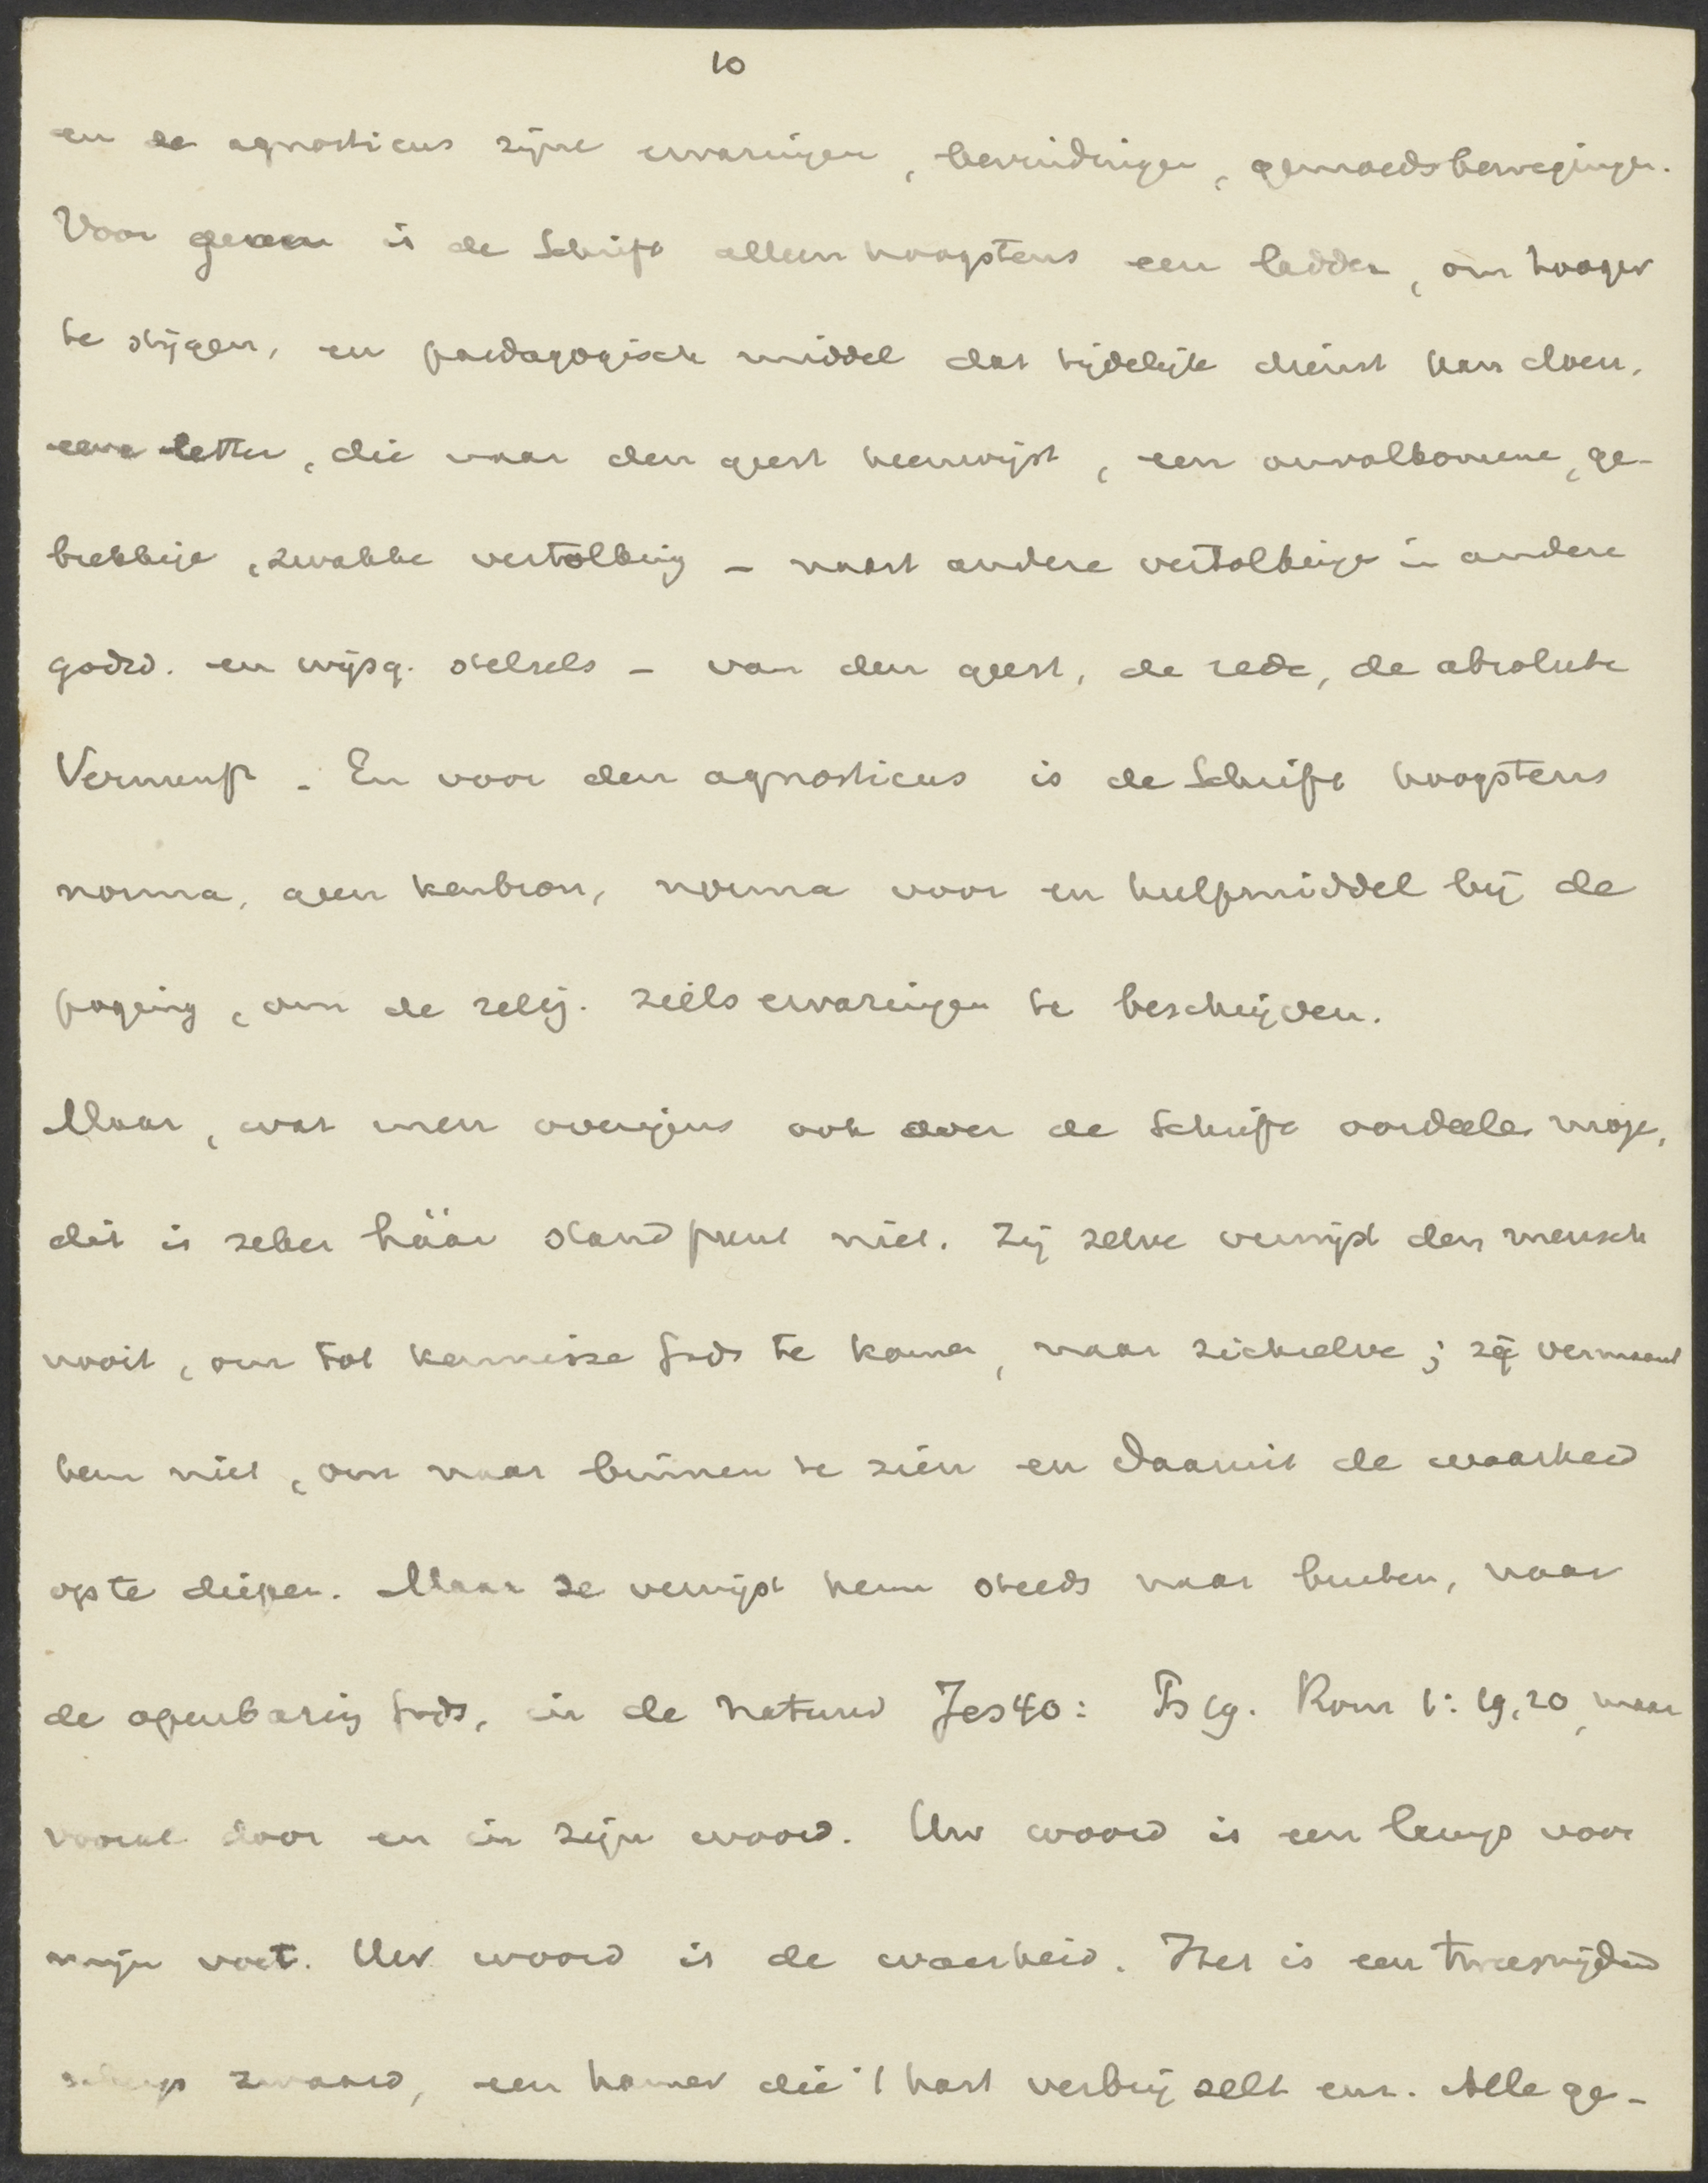 10
en de agnosticus zijne ervaringen, bevindingen, gemoedsbewegingen.
Voor genen is de Schrift alleen hoogstens een ladder, om hooger
te stijgen, en paedagogisch middel dat tijdelijk dienst kan doen,
eene letter, die naar den geest heenwijst, een onvolkomene, ge-
brekkige, zwakke vertolking – naast andere vertolkingen in andere
godsd. en wijsg. stelsels – van den geest, de rede, de absolute
Vernunft. En voor den agnosticus is de Schrift hoogstens
norma, geen kenbron, norma voor en hulpmiddel bij de
poging, om de relig. zielservaringen te beschrijven.
Maar, wat men overigens ook over de Schrift oordeelen moge,
dit is zeker háár standpunt niet. Zij zelve verwijst den mensch
nooit, om tot kennisse Gods te komen, naar zichzelve; zij vermaant
hem niet, om naar binnen te zien en daaruit de waarheid
op te diepen. Maar ze verwijst hem steeds naar buiten, naar
de openbaring Gods, in de natuur Jes 40: Ps 19. Rom 1:19,20, maar
vooral door en in zijn woord. Uw woord is een lamp voor
mijn voet. Uw woord is de waarheid. Het is een tweesnijdend
scherp zwaard, een hamer die 't hart verbrijzelt enz. Alle ge-